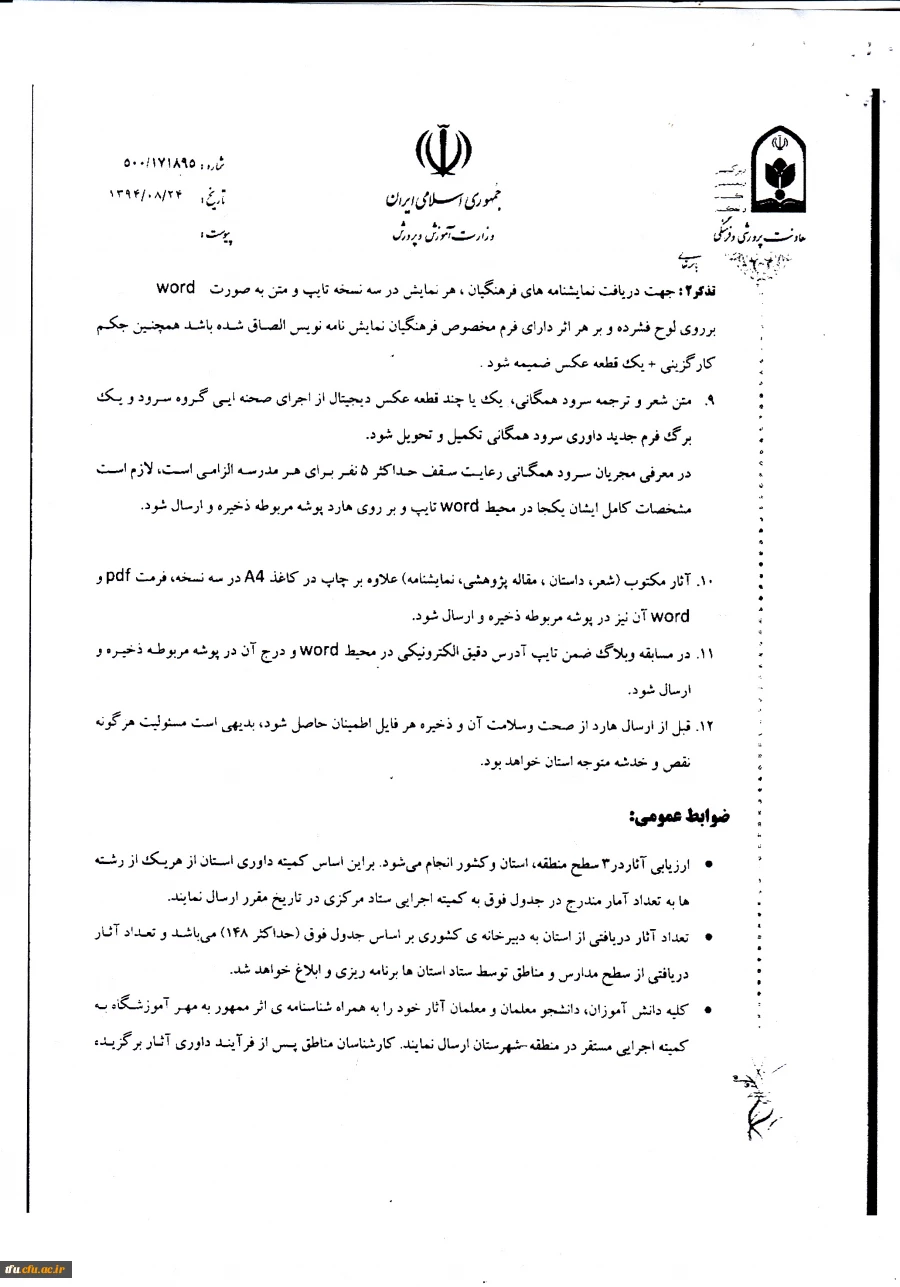 شماره: ۵۰۰/۱۷۱۸۹۵
تاریخ: ۱۳۹۴/۰۸/۲۴
پیوست:
جمهوری اسلامی ایران
وزارت آموزش و پرورش
معاونت پرورشی و فرهنگی
تذکر۲: جهت دریافت نمایشنامه های فرهنگیان ، هر نمایش در سه نسخه تایپ و متن به صورت word
برروی لوح فشرده و بر هر اثر دارای فرم مخصوص فرهنگیان نمایش نامه نویس الصاق شده باشد همچنین حکم
کارگزینی + یک قطعه عکس ضمیمه شود .
۹. متن شعر و ترجمه سرود همگانی، یک یا چند قطعه عکس دیجیتال از اجرای صحنه ایی گروه سرود و یک
برگ فرم جدید داوری سرود همگانی تکمیل و تحویل شود.
در معرفی مجریان سرود همگانی رعایت سقف حداکثر ۵ نفر برای هر مدرسه الزامی است، لازم است
مشخصات کامل ایشان یکجا در محیط word تایپ و بر روی هارد پوشه مربوطه ذخیره و ارسال شود.
۱۰. آثار مکتوب (شعر، داستان ، مقاله پژوهشی، نمایشنامه) علاوه بر چاپ در کاغذ A4 در سه نسخه، فرمت pdf و
word آن نیز در پوشه مربوطه ذخیره و ارسال شود.
۱۱. در مسابقه وبلاگ ضمن تایپ آدرس دقیق الکترونیکی در محیط word و درج آن در پوشه مربوطه ذخیره و
ارسال شود.
۱۲. قبل از ارسال هارد از صحت وسلامت آن و ذخیره هر فایل اطمینان حاصل شود، بدیهی است مسئولیت هرگونه
نقص و خدشه متوجه استان خواهد بود.
ضوابط عمومی:
• ارزیابی آثاردر۳ سطح منطقه، استان وکشور انجام می‌شود. براین اساس کمیته داوری استان از هریک از رشته
ها به تعداد آمار مندرج در جدول فوق به کمیته اجرایی ستاد مرکزی در تاریخ مقرر ارسال نمایند.
• تعداد آثار دریافتی از استان به دبیرخانه ی کشوری بر اساس جدول فوق (حداکثر ۱۴۸) می‌باشد و تعداد آثار
دریافتی از سطح مدارس و مناطق توسط ستاد استان ها برنامه ریزی و ابلاغ خواهد شد.
• کلیه دانش آموزان، دانشجو معلمان و معلمان آثار خود را به همراه شناسنامه ی اثر ممهور به مهر آموزشگاه به
کمیته اجرایی مستقر در منطقه-شهرستان ارسال نمایند. کارشناسان مناطق پس از فرآیند داوری آثار برگزیده
tfu.cfu.ac.ir